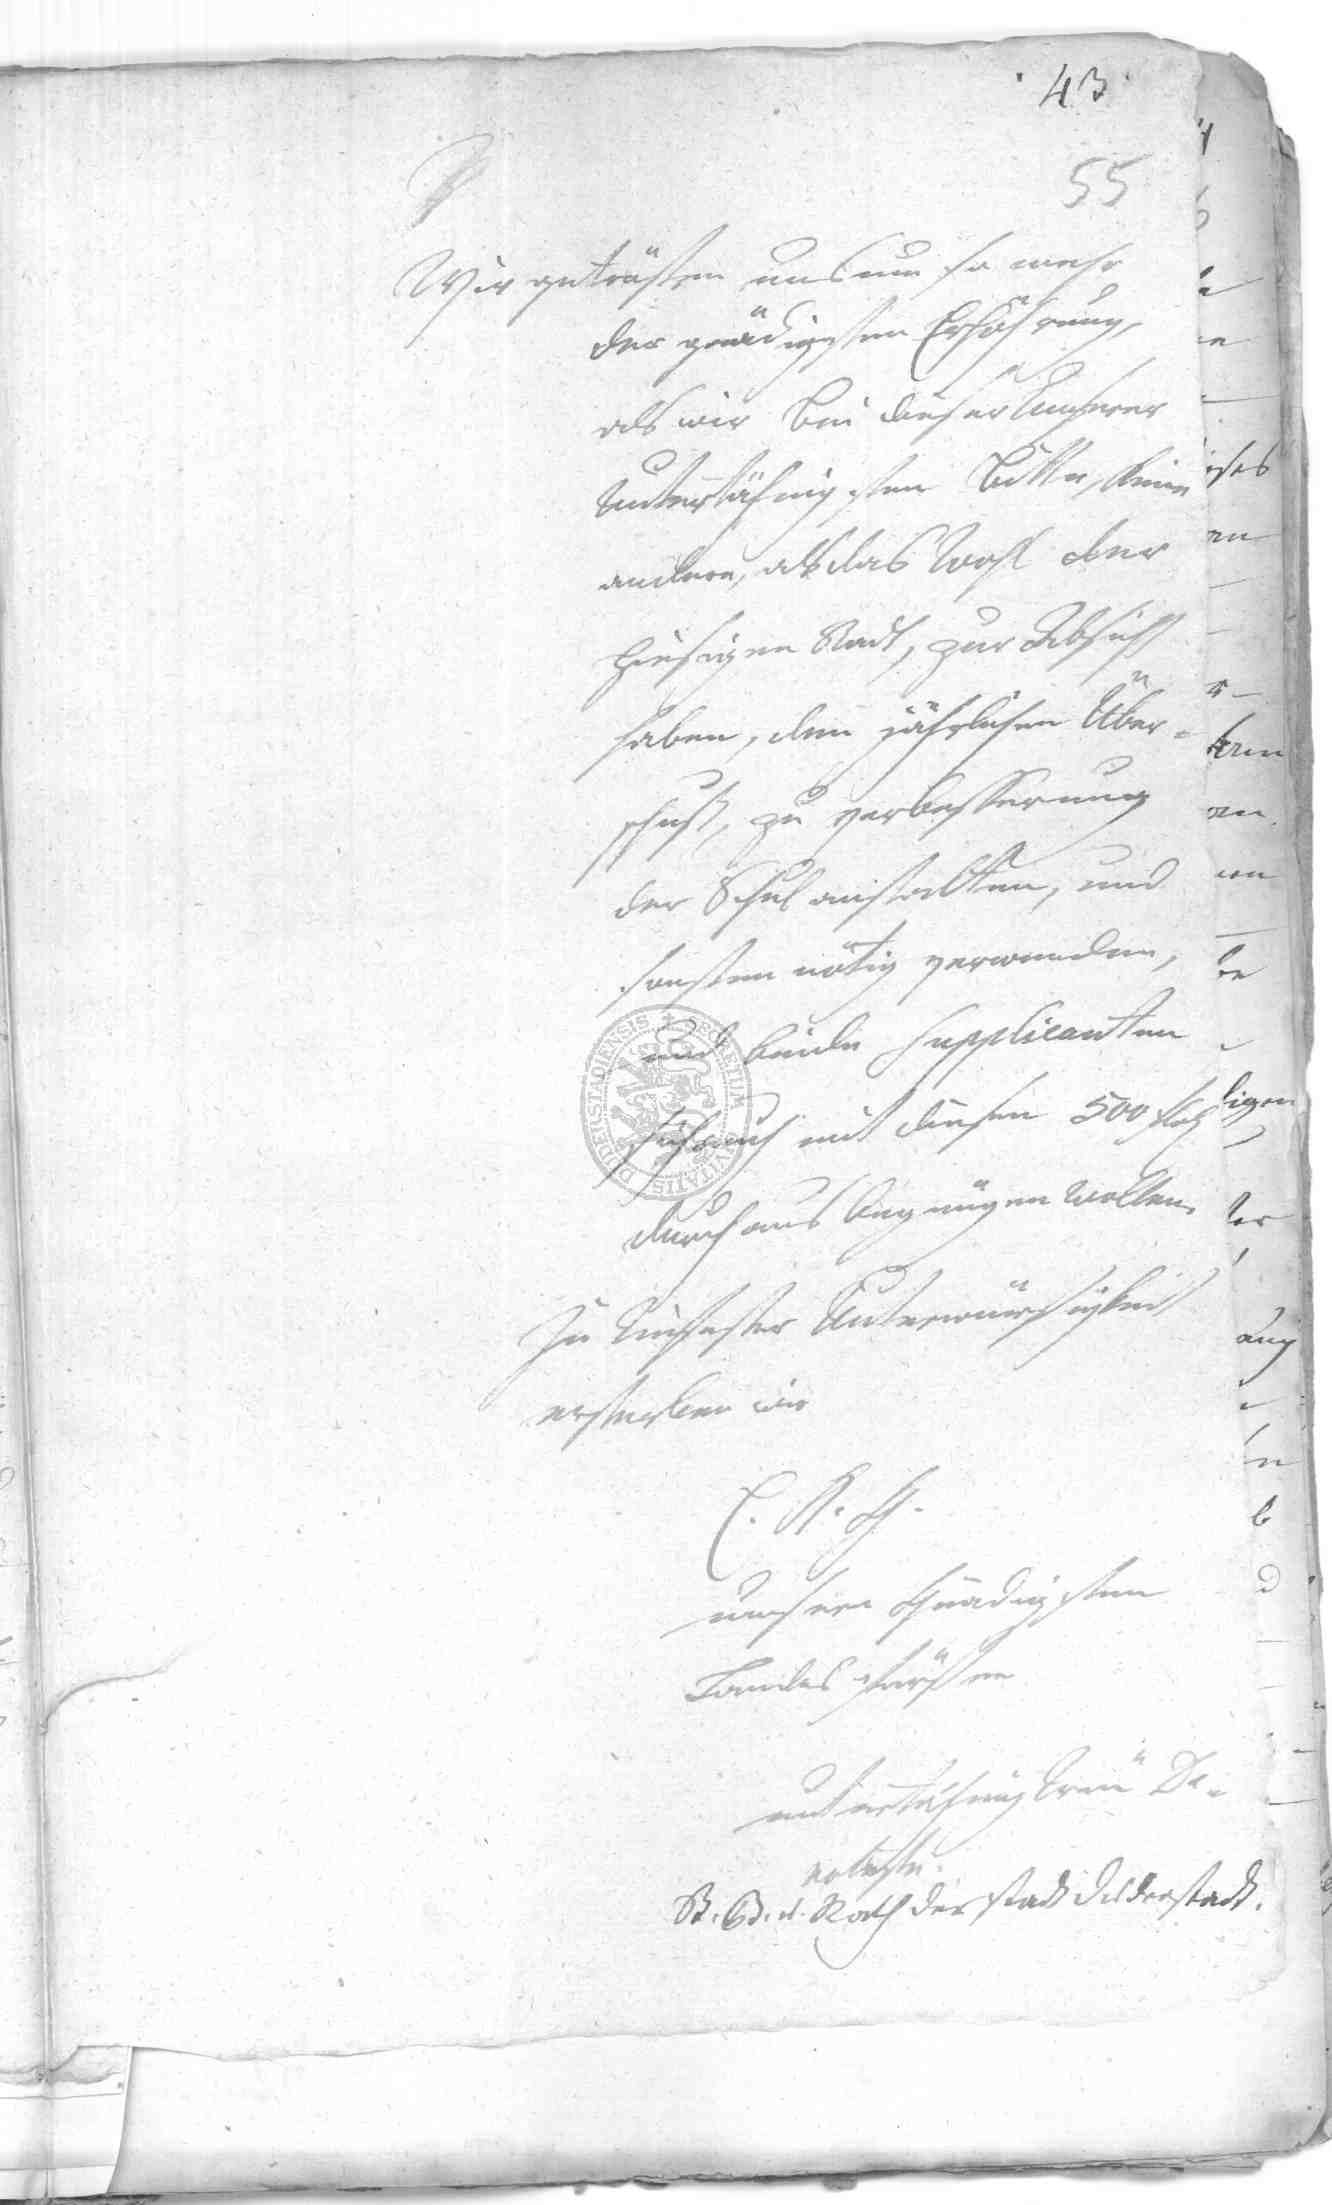 43
55
Wir getrösten uns um so mehr
der gnädigsten Erhöhrung,
als wir bei dieser Unserer
Unterthänigsten Bitte, keine
andere, als das Wohl der
hiesigen Stadt, zur Absicht
haben, den jährlichen Über-
schuß, zu verbesserung
der Schulanstalten, und
sonsten nötig verwenden,
und beide Supplicanten
sich auch mit diesen 500
durchaus begnügen wollen.
In Unterwürfigkeit
ersterben wir
E. K. G.
unseren Gnädigsten
Landes Fürsten
unterthänig treu De-
voteste.
B. B. u. Rath der stadt Duderstadt.
SECRETUM CIVITATIS DUDERSTADIENSIS